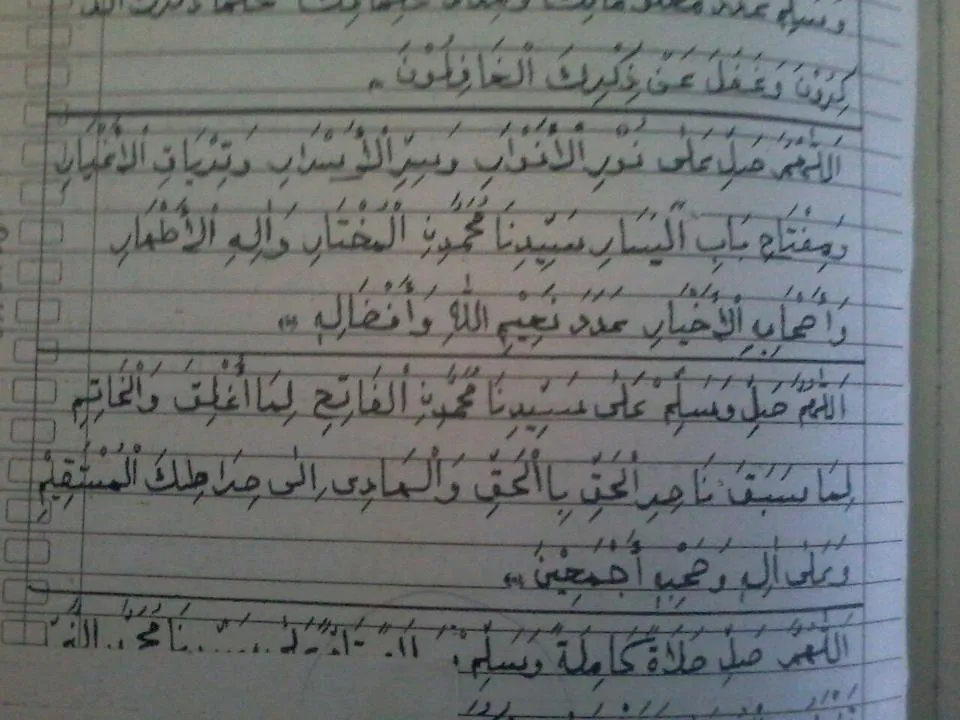 وَسَلِّمْ عَدَدَ
كِرُوْنَ وَغَفَلَ عَنْ ذِكْرِكَ الْغَافِلُوْنَ
اَللّٰهُمَّ صَلِّ عَلٰى نُوْرِ الْأَنْوَارِ وَسِرِّ الْأَسْرَارِ وَتِرْيَاقِ الْأَغْيَارِ
وَمِفْتَاحِ بَابِ الْيَسَارِ سَيِّدِنَا مُحَمَّدِنِ الْمُخْتَارِ وَاٰلِهِ الْأَطْهَارِ
وَأَصْحَابِهِ الْأَخْيَارِ عَدَدَ نِعَيمِ اللّٰهِ وَأَفْضَالِهِ
اَللّٰهُمَّ صَلِّ وَسَلِّمْ عَلٰى سَيِّدِنَا مُحَمَّدِنِ الْفَاتِحِ لِمَا أُغْلِقَ وَالْخَاتِمِ
لِمَا سَبَقَ نَاصِرِ الْحَقِّ بِاالْحَقِّ وَالْهَادِى اِلٰى صِرَاطِكَ الْمُسْتَقِيْمِ
وَعَلٰى اٰلِهِ وَصَحْبِهِ أَجْمَعِيْنَ
اَللّٰهُمَّ صَلِّ صَلَاةً كَامِلَةً وَسَلِّمْ